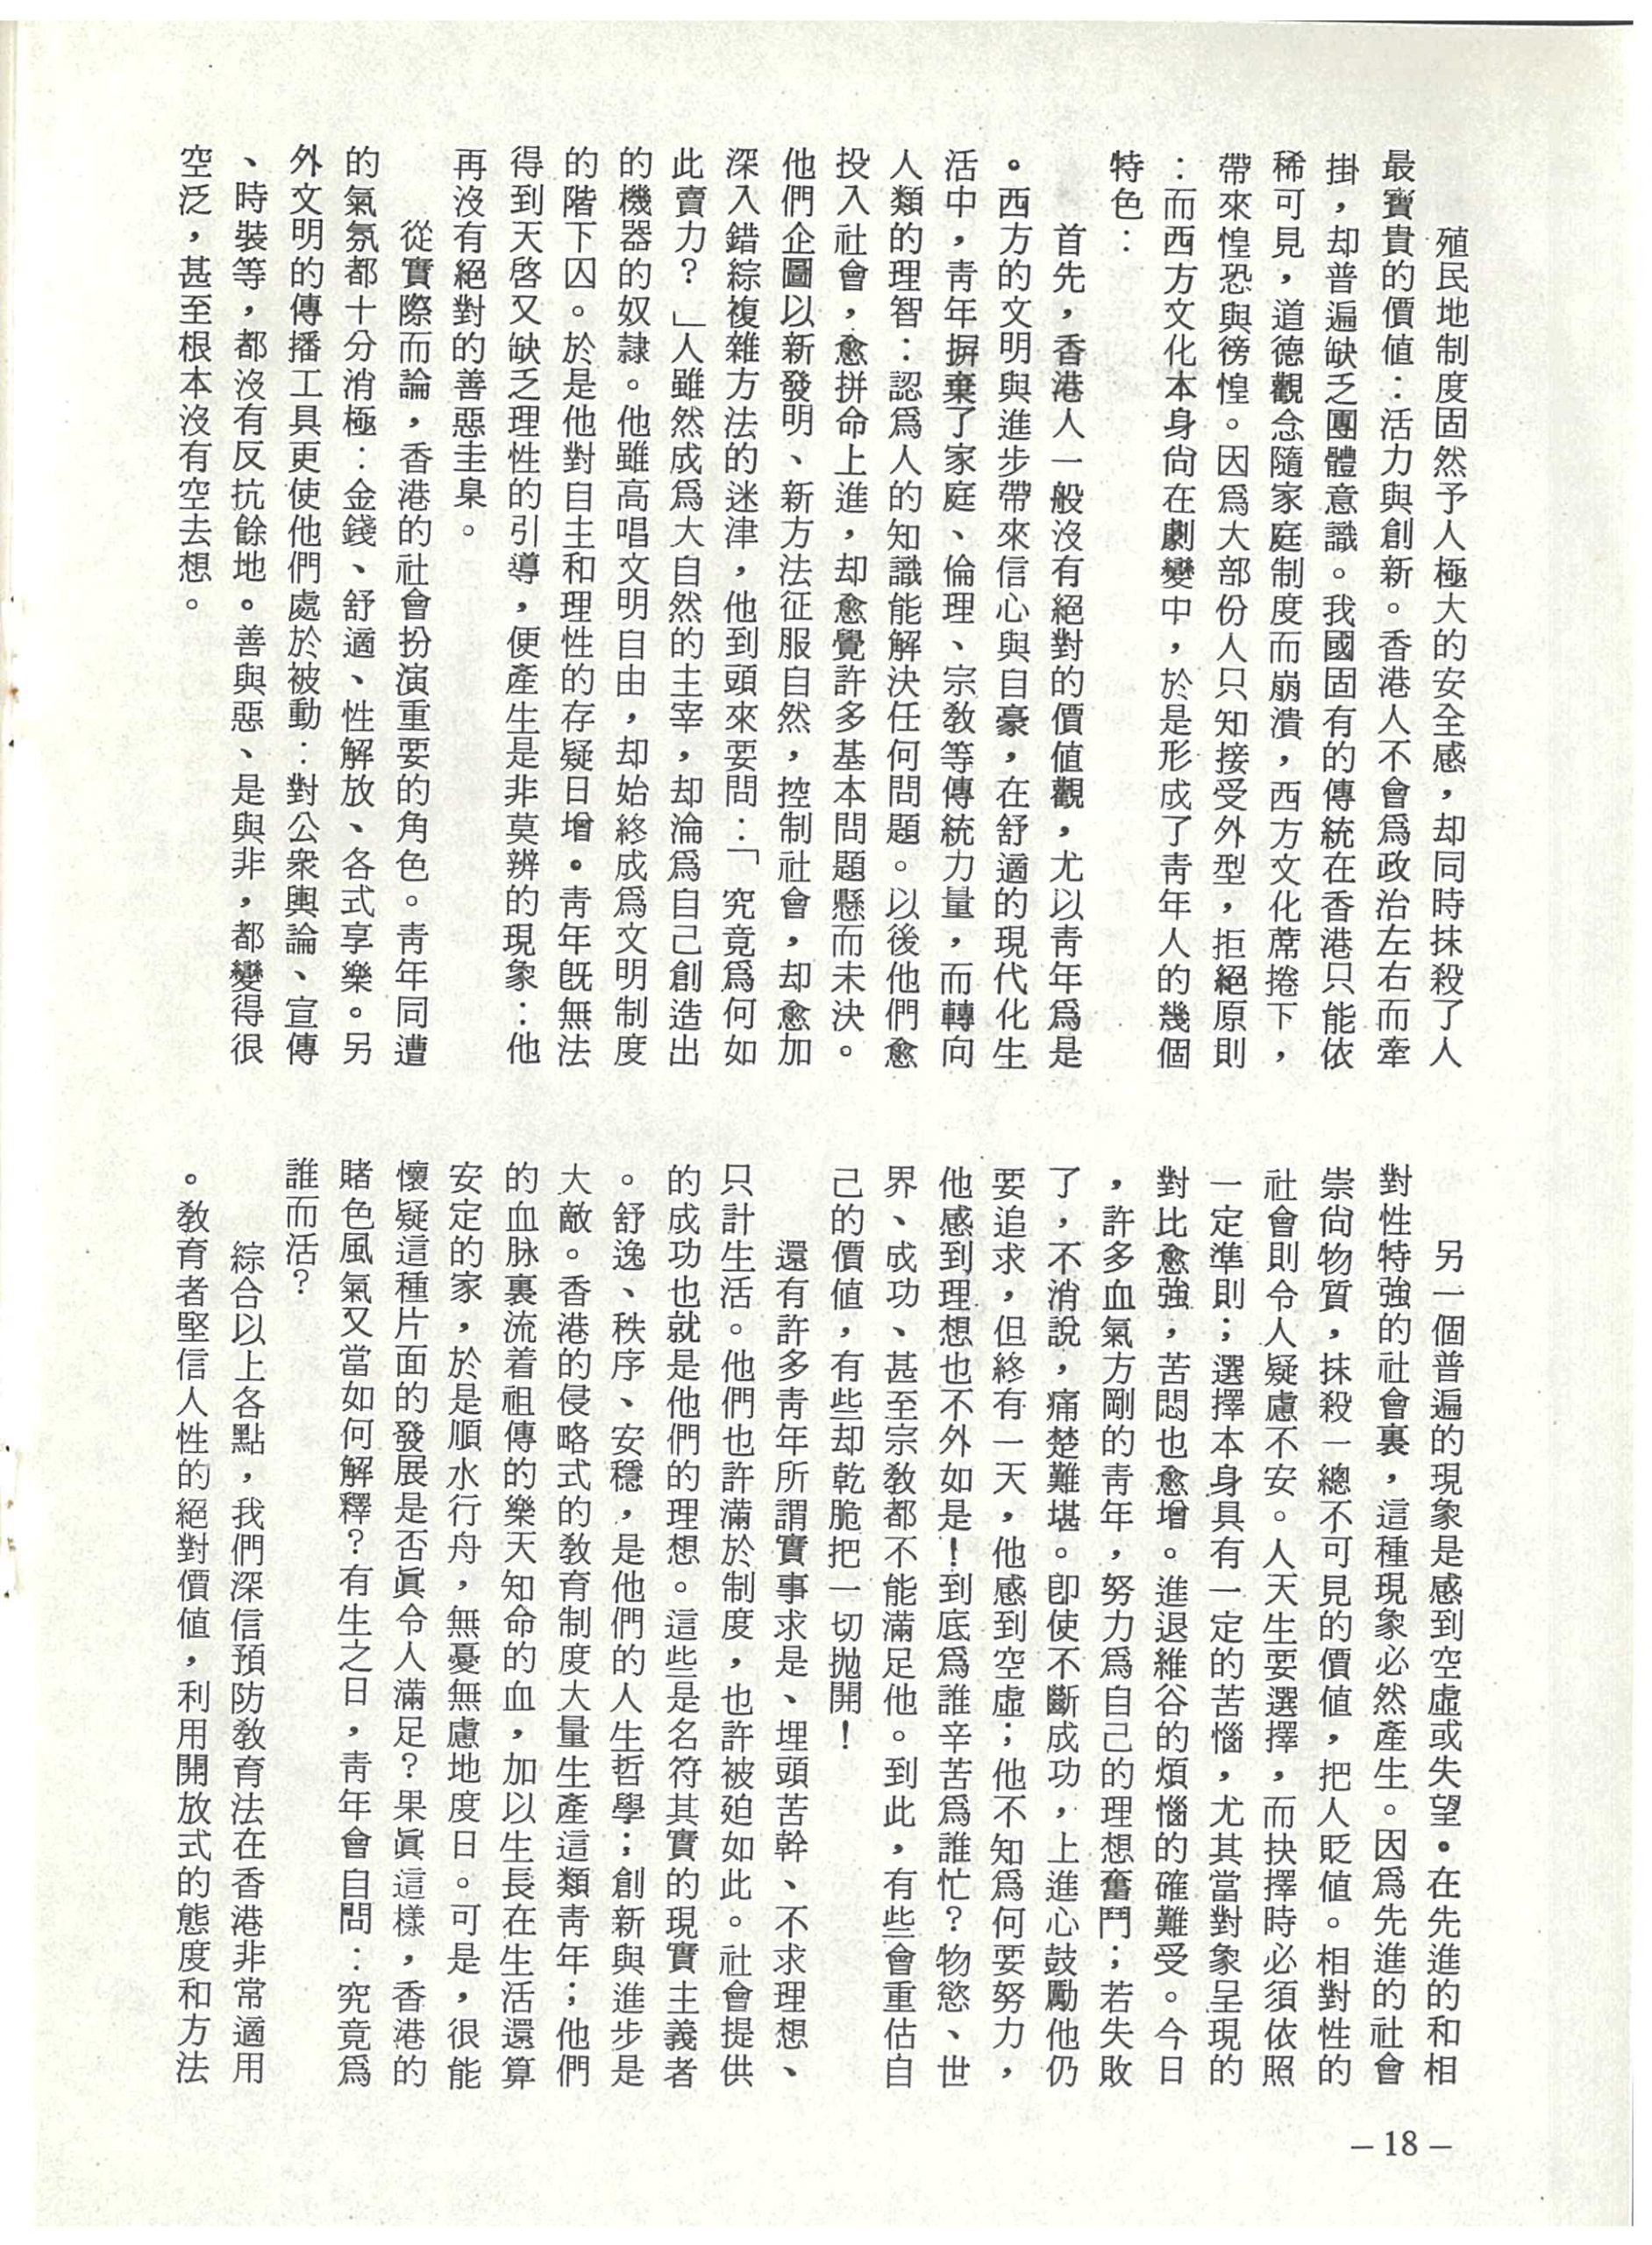 殖民地制度固然予人極大的安全感，却同時抹殺了人
最寶貴的價值：活力與創新。香港人不會爲政治左右而牽
掛，却普遍缺乏團體意識。我國固有的傳統在香港只能依
稀可見，道德觀念隨家庭制度而崩潰，西方文化蓆捲下，
帶來惶恐與徬惶。因爲大部份人只知接受外型，拒絕原則
：而西方文化本身尙在劇變中，於是形成了靑年人的幾個
特色：
首先，香港人一般沒有絕對的價值觀，尤以靑年爲是
。西方的文明與進步帶來信心與自豪，在舒適的現代化生
活中，靑年摒棄了家庭、倫理、宗敎等傳統力量，而轉向
人類的理智：認爲人的知識能解決任何問題。以後他們愈
投入社會，愈拼命上進，却愈覺許多基本問題懸而未決。
他們企圖以新發明、新方法征服自然，控制社會，却愈加
深入錯綜複雜方法的迷津，他到頭來要問：「究竟爲何如
此賣力？」人雖然成爲大自然的主宰，却淪爲自己創造出
的機器的奴隸。他雖高唱文明自由，却始終成爲文明制度
的階下囚。於是他對自主和理性的存疑日增。靑年旣無法
得到天啓又缺乏理性的引導，便產生是非莫辨的現象：他
再沒有絕對的善惡圭臬。
從實際而論，香港的社會扮演重要的角色。靑年同遭
的氣氛都十分消極：金錢、舒適、性解放、各式享樂。另
外文明的傳播工具更使他們處於被動：對公衆輿論、宣傳
、時裝等，都沒有反抗餘地。善與惡、是與非，都變得很
空泛，甚至根本沒有空去想。
另一個普遍的現象是感到空虛或失望。在先進的和相
對性特強的社會裏，這種現象必然產生。因爲先進的社會
崇尙物質，抹殺一總不可見的價值，把人貶值。相對性的
社會則令人疑慮不安。人天生要選擇，而抉擇時必須依照
一定準則；選擇本身具有一定的苦惱，尤其當對象呈現的
對比愈強，苦悶也愈增。進退維谷的煩惱的確難受。今日
，許多血氣方剛的靑年，努力爲自己的理想奮鬥；若失敗
了，不消說，痛楚難堪。卽使不斷成功，上進心鼓勵他仍
要追求，但終有一天，他感到空虛；他不知爲何要努力，
他感到理想也不外如是！到底爲誰辛苦爲誰忙？物慾、世
界、成功、甚至宗敎都不能滿足他。到此，有些會重估自
己的價值，有些却乾脆把一切抛開！
還有許多靑年所謂實事求是、埋頭苦幹、不求理想、
只計生活。他們也許滿於制度，也許被廹如此。社會提供
的成功也就是他們的理想。這些是名符其實的現實主義者
。舒逸、秩序、安穩，是他們的人生哲學；創新與進步是
大敵。香港的侵略式的敎育制度大量生產這類靑年；他們
的血脉裏流着祖傳的樂天知命的血，加以生長在生活還算
安定的家，於是順水行舟，無憂無慮地度日。可是，很能
懷疑這種片面的發展是否眞令人滿足？果眞這樣，香港的
賭色風氣又當如何解釋？有生之日，靑年會自問：究竟爲
誰而活？
綜合以上各點，我們深信預防敎育法在香港非常適用
。敎育者堅信人性的絕對價值，利用開放式的態度和方法
— 18 —